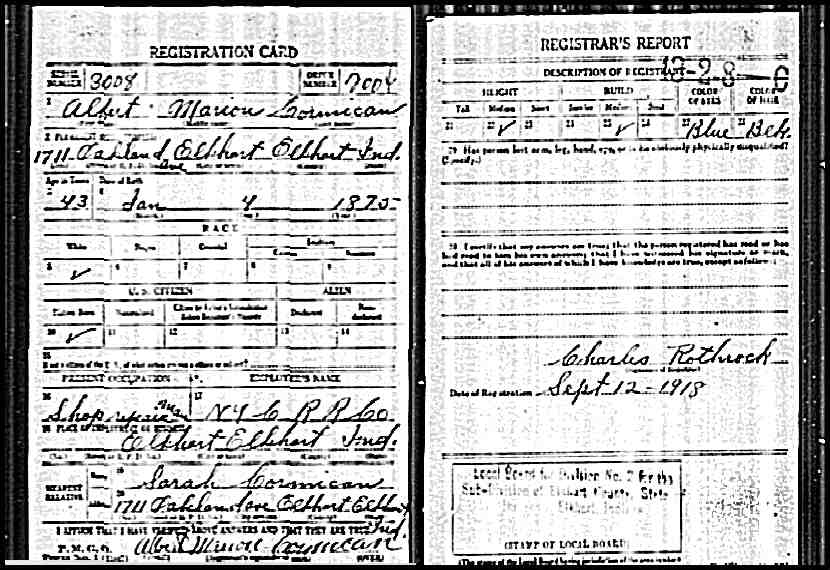 REGISTRATION CARD
SERIAL NUMBER 3008 ORDER NUMBER 7004
1 Albert Marion Cormican
2 PERMANENT HOME ADDRESS
1711 Oakland Ave Elkhart Elkhart Ind.
Age in Years Date of Birth
43 Jan 4 1875
RACE
White Negro Oriental Indian
5 ✓ 6 7 8 9
U. S. CITIZEN ALIEN
Native Born Naturalized Citizen by Father's Naturalization Before Registrant's Majority Declarant Non-declarant
10 ✓ 11 12 13 14
15
If not a citizen of the U. S., of what nation are you a citizen or subject?
PRESENT OCCUPATION EMPLOYER'S NAME
16 17
Shop N Y C R R Co
18 PLACE OF EMPLOYMENT OR BUSINESS
Elkhart Elkhart Ind.
NEAREST RELATIVE
Name 19 Sarah Cormican
Address 20 1711 Oakland ave Elkhart Elkhart Ind.
I AFFIRM THAT I HAVE VERIFIED ABOVE ANSWERS AND THAT THEY ARE TRUE
P. M. G. O.
Albert Marion Cormican
(OVER)
REGISTRAR'S REPORT
DESCRIPTION OF REGISTRANT
HEIGHT BUILD COLOR OF EYES COLOR OF HAIR
Tall Medium Short Slender Medium Stout
21 22 ✓ 23 24 25 ✓ 26 27 Blue 28 Blk.
29 Has person lost arm, leg, hand, eye, or is he obviously physically disqualified?
(Specify.)
30 I certify that my answers are true; that the person registered has read or has
had read to him his own answers; that I have witnessed his signature or mark,
and that all of his answers of which I have knowledge are true, except as follows:
Charles Rothrock
(Signature of Registrar)
Date of Registration Sept 12 - 1918
Local Board for Division No. 2 for the
Sub-Division of Elkhart County, State
Elkhart, Indiana
(STAMP OF LOCAL BOARD)